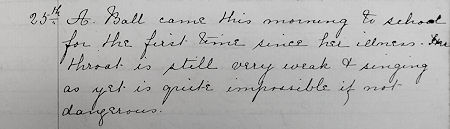 25th A. Ball came this morning to school
for the first time since her illness. Her
throat is still very weak & singing
as yet is quite impossible if not
dangerous.